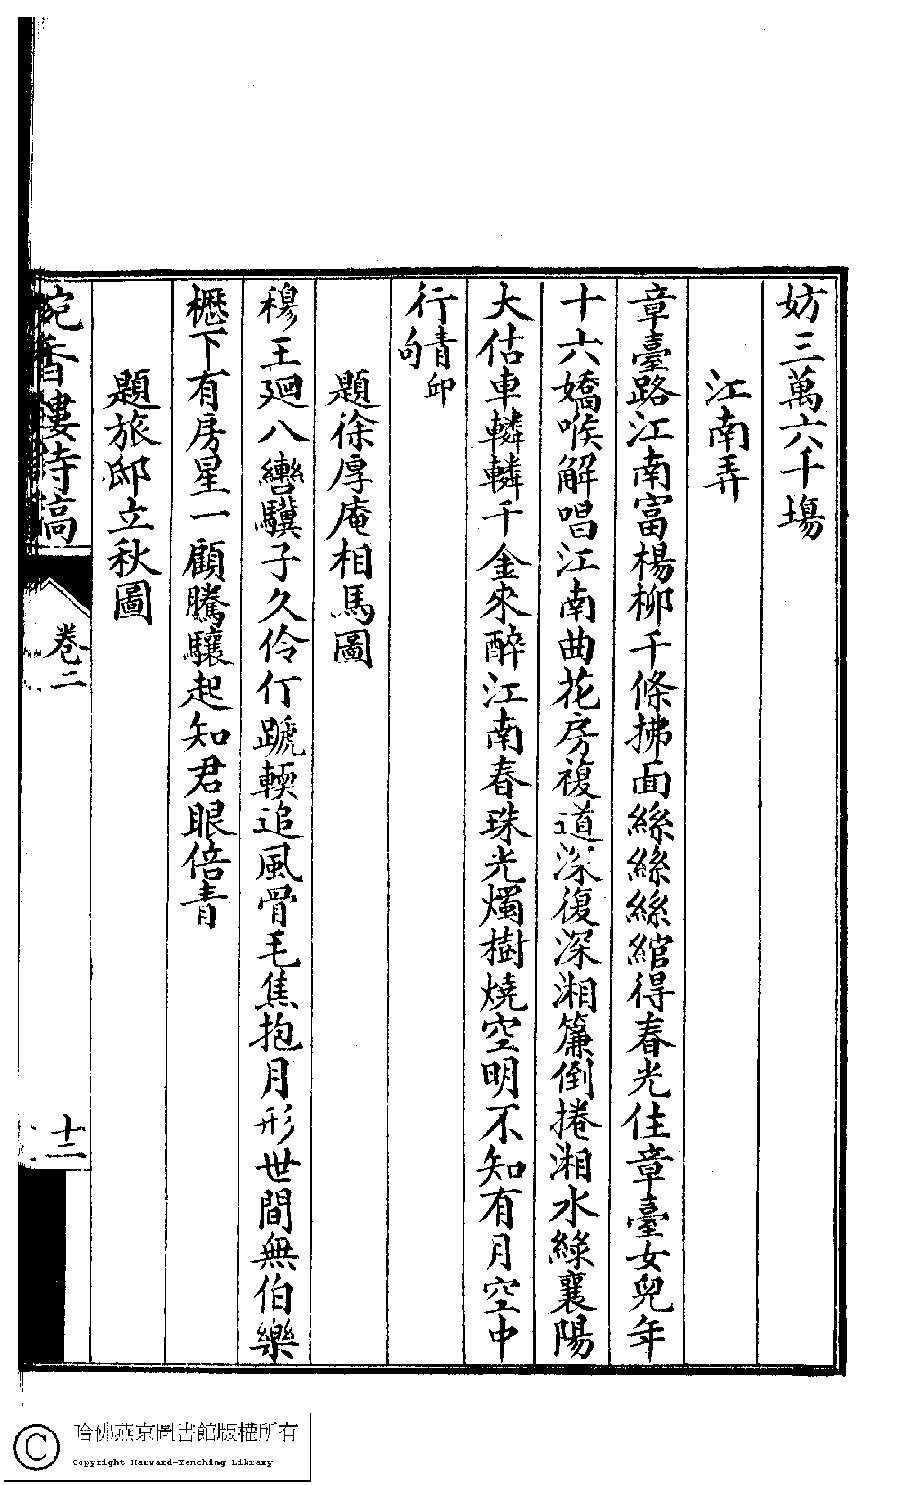 妨三萬六千塲
江南弄
章臺路江南富楊柳千條拂面絲絲絲綰得春光住章臺女兒年
十六嬌喉解唱江南曲花房複道深復深湘簾倒捲湘水綠襄陽
大估車轔轔千金來醉江南春珠光燭樹燒空明不知有月空中
行青邱句
題徐厚庵相馬圖
穆王廻八轡驥子久伶仃蹏輭追風骨毛焦抱月形世間無伯樂
櫪下有房星一顧騰驤起知君眼倍青
題旅邸立秋圖
香樓詩稿
卷二
十二
哈佛燕京圖書館版權所有
Copyright Harvard-Yenching Library